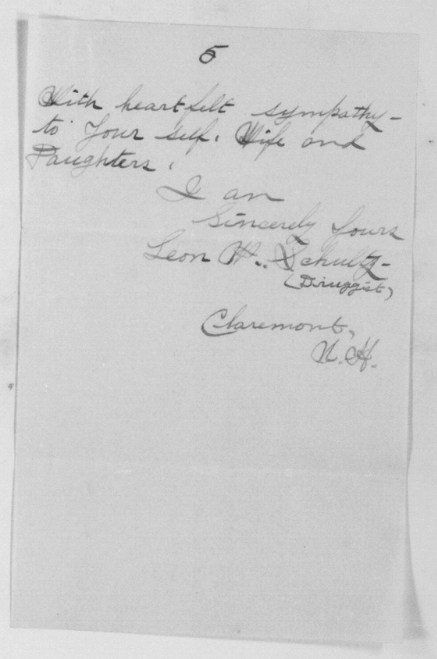 5
With heartfelt sympathy-
to Your self. Wife and
Daughters.
I am
Sincerely Yours
Leon H. Schultz-
(Druggist)
Claremont,
N.H.